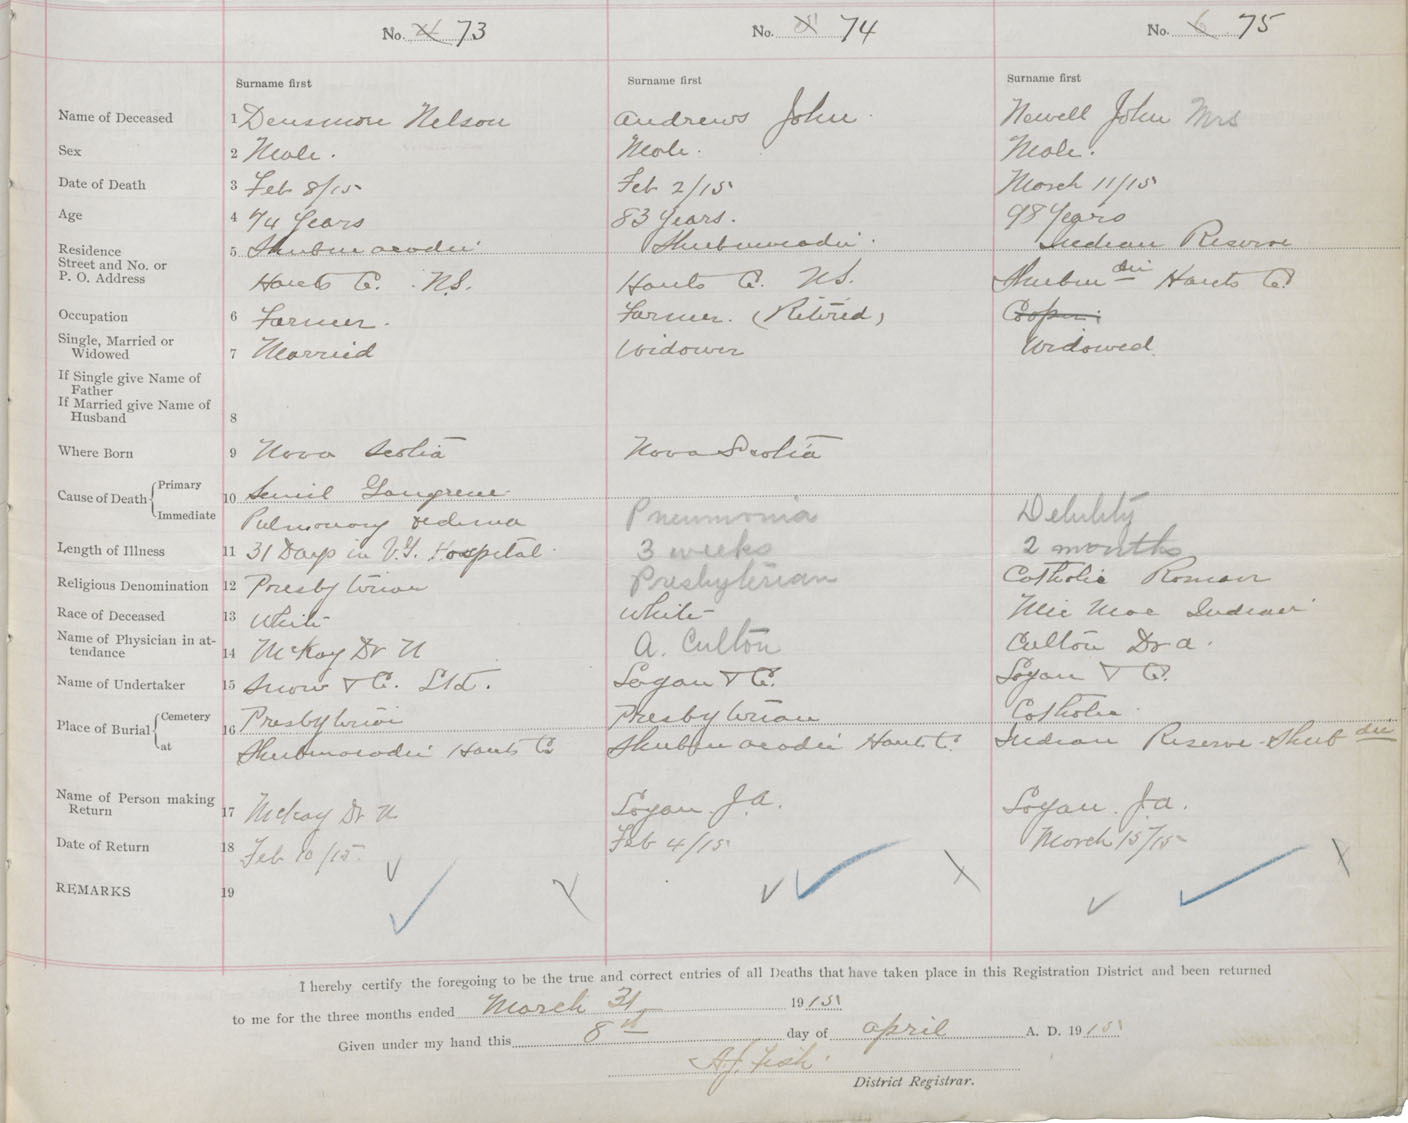 No. 73 No. 74 No. 75
Surname first Surname first Surname first
Name of Deceased 1 Densmore Nelson Andrews John Newell John Mrs
Sex 2 Male. Male. Male.
Date of Death 3 Feb 8/15 Feb 2/15 March 11/15
Age 4 74 Years 83 Years. 98 Years
Residence Street and No. or P. O. Address 5 Shubenacadie Shubenacadie. Indian Reserve
Hants Co. N.S. Hants Co. N.S. Shuben die Hants Co
Occupation 6 Farmer. Farmer. (Retired) Cooper.
Single, Married or Widowed 7 Married Widower Widowed
If Single give Name of Father
If Married give Name of Husband 8
Where Born 9 Nova Scotia Nova Scotia
Cause of Death Primary 10 Senil Gangrene
Immediate Pulmonary Oedema Pneumonia Debility
Length of Illness 11 31 Days in V.G. Hospital 3 weeks 2 months
Religious Denomination 12 Presbyterian Presbyterian Catholic Roman
Race of Deceased 13 White White Mic Mac Indian
Name of Physician in attendance 14 McKay Dr N A. Culton Culton Dr a.
Name of Undertaker 15 Snow & Co. Ltd. Logan & Co. Logan & Co.
Place of Burial Cemetery 16 Presbyterian Presbyterian Catholic
at Shubenacadie Hants Co Shubenacadie Hants Co. Indian Reserve Shub die
Name of Person making Return 17 McKay Dr N Logan J.A. Logan J.A.
Date of Return 18 Feb 10/15. Feb 4/15 March 15/15
REMARKS 19
I hereby certify the foregoing to be the true and correct entries of all Deaths that have taken place in this Registration District and been returned
to me for the three months ended March 31 1915
Given under my hand this 8th day of April A. D. 1915
A.J. Fish
District Registrar.